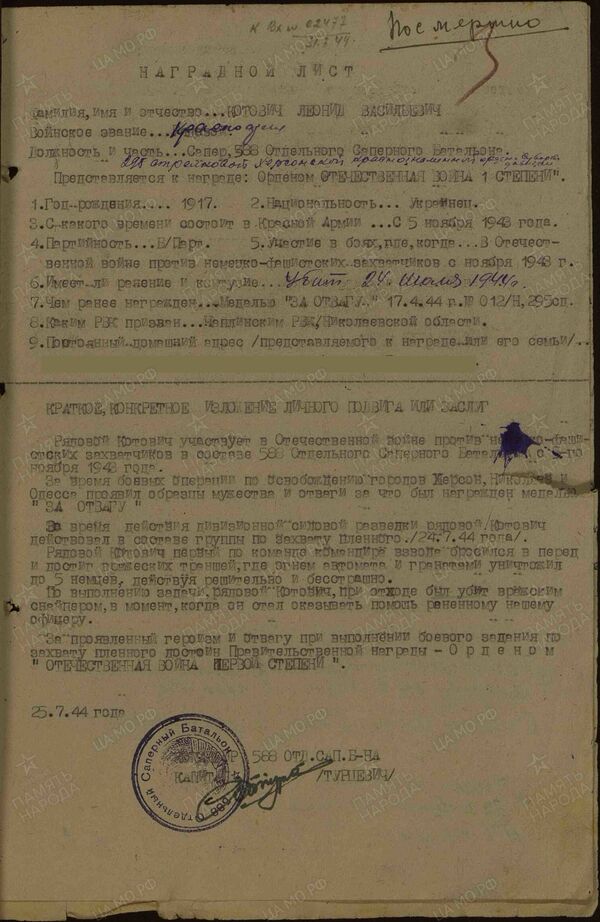 К Вх № 02472
31.7.44.
Посмертно
НАГРАДНОЙ ЛИСТ
Фамилия,имя и отчество...КОТОВИЧ ЛЕОНИД ВАСИЛЬЕВИЧ
Воинское звание... Красноармеец
Должность и часть...Сапер,588 Отдельного Саперного Батальона.
295 стрелковой Херсонской краснознаменной ордена Суворова дивизии
Представляется к награде: Орденом ОТЕЧЕСТВЕННАЯ ВОЙНА 1 СТЕПЕНИ".
1.Год рождения.... 1917. 2.Национальность... Украинец.
3.С какого времени состоит в Красной Армии ...С 5 ноября 1943 года.
4.Партийность...Б/Парт. 5.Участие в боях,где,когда...В Отечест-
венной войне против немецко-фашистских захватчиков с ноября 1943 г.
6.Имеет ли ранение и контузие... Убит 24 июля 1944г.
7.Чем ранее награжден...Медалью "ЗА ОТВАГУ" 17.4.44 г.№ 012/Н,295сд.
8.Каким РВК призван...Чаплинским РВК,Николаевской области.
9.Постоянный домашний адрес /представляемого к награде или его семьи/..
КРАТКОЕ,КОНКРЕТНОЕ ИЗЛОЖЕНИЕ ЛИЧНОГО ПОДВИГА ИЛИ ЗАСЛУГ
Рядовой Котович участвует в Отечественной войне против немецко-фаши-
стских захватчиков в составе 588 Отдельного Саперного Батальона с 5-го
ноября 1943 года.
За время боевых операции по освобождению городов Херсон, Николаев и
Одесса проявил образцы мужества и отваги за что был награжден медалью
"ЗА ОТВАГУ"
Во время действия дивизионной силовой разведки рядовой Котович
действовал в составе группы по захвату пленного./24.7.44 года/.
Рядовой Котович первый по команде командира взвода бросился в перед
и достиг вражеских траншей,где огнем автомата и гранатами уничтожил
до 5 немцев, действуя решительно и бесстрашно.
По выполнению задачи,рядовой Котович,при отходе был убит вражским
снайпером,в момент,когда он стал оказывать помощь раненному нашему
офицеру.
За проявленный героизм и отвагу при выполнении боевого задания по
захвату пленного достоин Правительственной награды - Орденом
" ОТЕЧЕСТВЕННАЯ ВОЙНА ПЕРВОЙ СТЕПЕНИ ".
25.7.44 года
588 ОТД.САП.Б-НА
КАПИТАН /ТУРЦЕВИЧ/
588 Отдельный Саперный Батальон
ЦАМО.РФ
ПАМЯТЬ НАРОДА